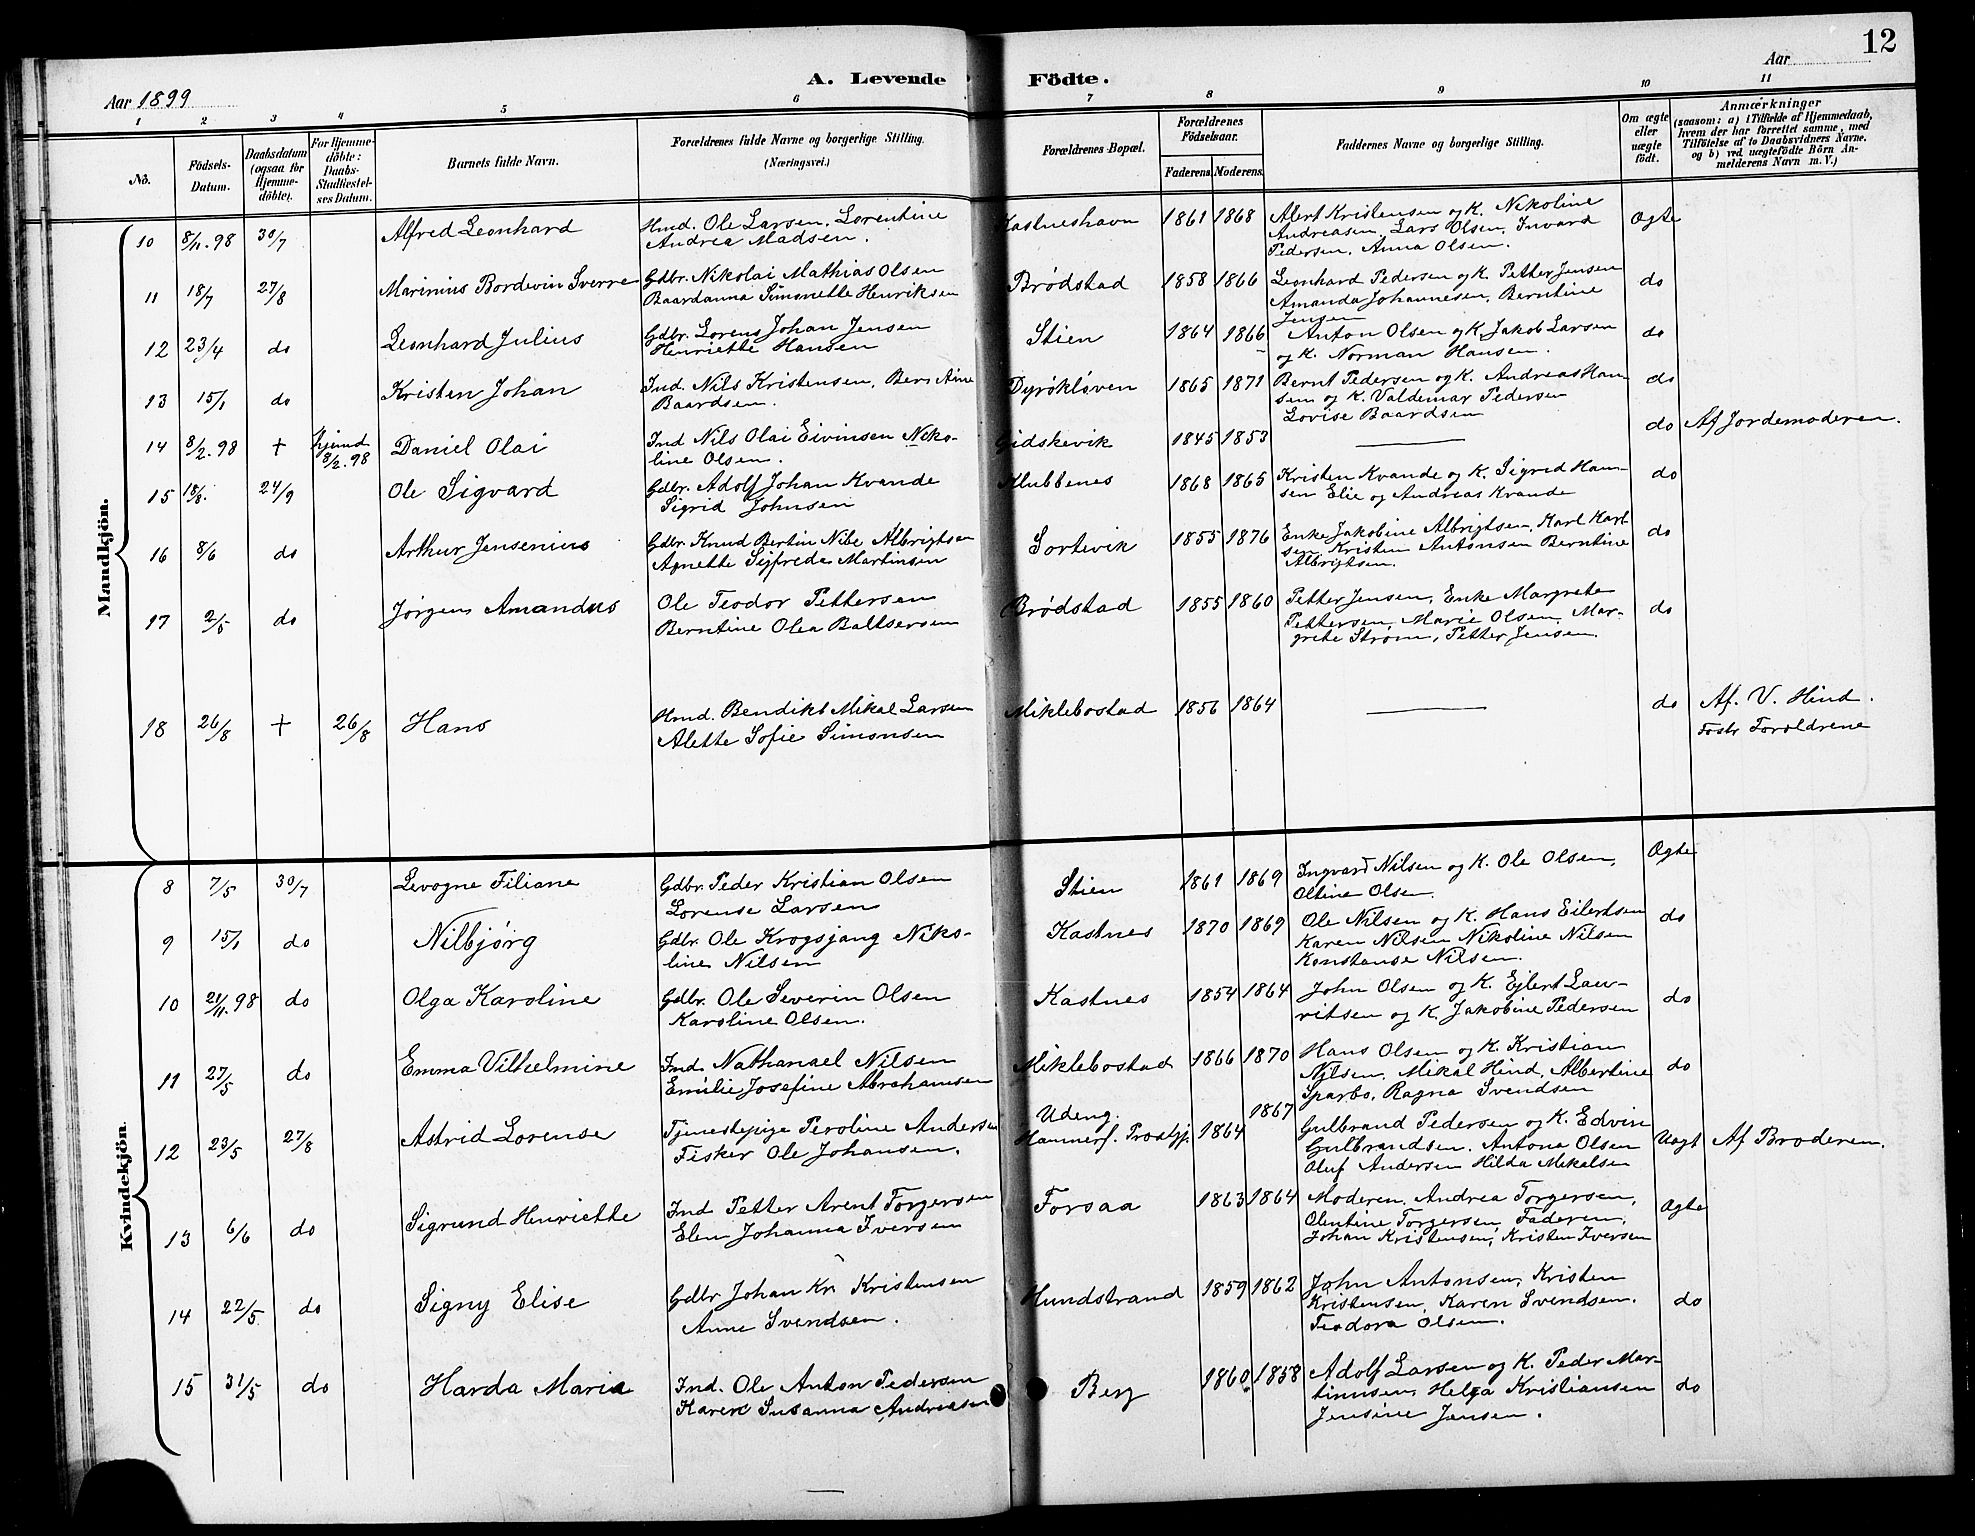 12
A. Levende Födte.
Aar 1899
Aar
1 2 3 4 5 6 7 8 9 10 11
No.
Födsels-Datum.
Daabsdatum (ogsaa for Hjemme-döbte).
For Hjemme-döbte: Daabs-Stadfæstel-ses Datum.
Barnets fulde Navn.
Forældrenes fulde Navne og borgerlige Stilling. (Næringsvei.)
Forældrenes Bopæl.
Forældrenes Födselsaar.
Faderens. Moderens.
Faddernes Navne og borgerlige Stilling.
Om ægte eller uægte födt.
Anmærkninger
(saasom: a) i Tilfælde af Hjemmedaab, hvem der har forrettet samme, med Tilföielse af to Daabsvidners Navne. og b) ved uægtefödte Börn An-melderens Navn m. V.)
Mandkjön.
10 8/11.98 30/7 Alfred Leonhard
Hmd. Ole Larsen, Lorentine
Andrea Madsen.
Kastneshavn 1861 1868
Alert Kristensen og K. Nikoline
Andreasen, Lars Olsen, Invard
Pedersen, Anna Olsen.
Ægte
11 18/7 27/8 Marinius Bordevin Sverre
Gdbr. Nikolai Mathias Olsen
Baardanna Simonette Henriksen
Brødstad 1858 1866
Leonhard Pedersen og K. Petter Jensen
Amanda Johannesen, Berntine
Jensen
do
12 23/4 do Leonhard Julius
Gdbr. Lorens Johan Jensen
Henriette Hansen
Stien 1864 1866
Anton Olsen og K. Jakob Larsen
og K. Norman Hansen.
do
13 15/1 do Kristen Johan
Ind. Nils Kristensen, Bern Aine
Baardsen.
Dyrökløven 1865 1871
Bernt Pedersen og K. Andreas Han-
sen og K. Valdemar Pedersen
Lovise Baardsen
do
14 8/2.98 + hjemd 8/2.98 Daniel Olai
Ind Nils Olai Eivinsen Niko-
line Olsen.
Gidskevik 1845 1853
do Af Jordemoderen.
15 18/8. 24/9 Ole Sigvard
Gdbr. Adolf Johan Kvande
Sigrid Johnsen
Klubbenes 1868 1865
Kristen Kvande og K. Sigrid Han-
sen Elie og Andreas Kvande
do
16 8/6 do Arthur Jensenius
Gdbr. Knud Bertin Nibe Albrigtsen
Agnette Sigfrede Martinsen
Sortevik 1855 1876
Enke Jakobine Albrigtsen, Karl Karl-
sen, Kristen Antonsen Berntine
Albrigtsen.
do
17 2/5 do Jørgens Amandus
Ole Teodor Pettersen
Berntine Olea Baltsersen
Brødstad 1855 1860
Petter Jensen, Enke Margrete
Pettersen, Marie Olsen, Mar-
grete Strøm, Petter Jensen.
do
18 26/8 + 26/8 Hans
Hmd. Bendikt Mikal Larsen
Alette Sofie Simonsen
Miklebostad 1856 1864
do Af. V. Hind.
Fostr Foroldrene
Kvindekjön.
8 7/5 30/7 Levogne Filiane
Gdbr Peder Kristian Olsen
Lorense Larsen
Stien 1861 1869
Ingvard Nilsen og K. Ole Olsen,
Oltine Olsen.
Ægte
9 15/1 do Nilbjørg
Gdbr. Ole Krogsjang Niko-
line Nilsen
Kastnes 1870 1869
Ole Nilsen og K. Hans Eilertsen
Karen Nilsen Nikoline Nilsen
Konstanse Nilsen.
do
10 21/11.98 do Olga Karoline
Gdbr. Ole Severin Olsen
Karoline Olsen.
Kastnes 1854 1864
John Olsen og K. Ejlert Lau-
ritsen og K. Jakobine Pedersen
do
11 27/5 do Emma Vilhelmine
Ind. Nathanael Nilsen
Emilie Josefine Abrahamsen
Miklebostad 1866 1870
Hans Olsen og K. Kristian
Nilsen, Mikal Hind, Albertine
Sparbo, Ragna Svendsen
do
12 23/5 27/8 Astrid Lorense
Tjenestepige Peroline Andersen
Fisker Ole Johansen.
Udeng.
Hammerf. Prostgj. 1864 1867
Gulbrand Pedersen og K. Edvin
Gulbrandsen, Antona Olsen
Oluf Andersen Hilda Mikalsen
Uægt Af Broderen.
13 6/6 do Sigrund Henriette
Ind Petter Arent Torgersen
Elen Johanna Iversen
Forsaa 1863 1864
Moderen, Andrea Torgersen,
Olentine Torgersen, Faderen,
Johan Kristensen, Kristen Iversen
Ægte
14 22/5 do Signy Elise
Gdbr Johan Kr Kristensen
Anne Svendsen.
Hundstrand 1859 1862
John Antonsen, Kristen
Kristensen, Karen Svendsen.
Teodora Olsen.
do
15 31/5 do Harda Maria
Ind. Ole Anton Pedersen
Karen Susanna Andreasen
Berg 1860 1858
Adolf Larsen og K. Peder Mar-
tinusen, Helga Kristiansen
Jensine Jensen.
do